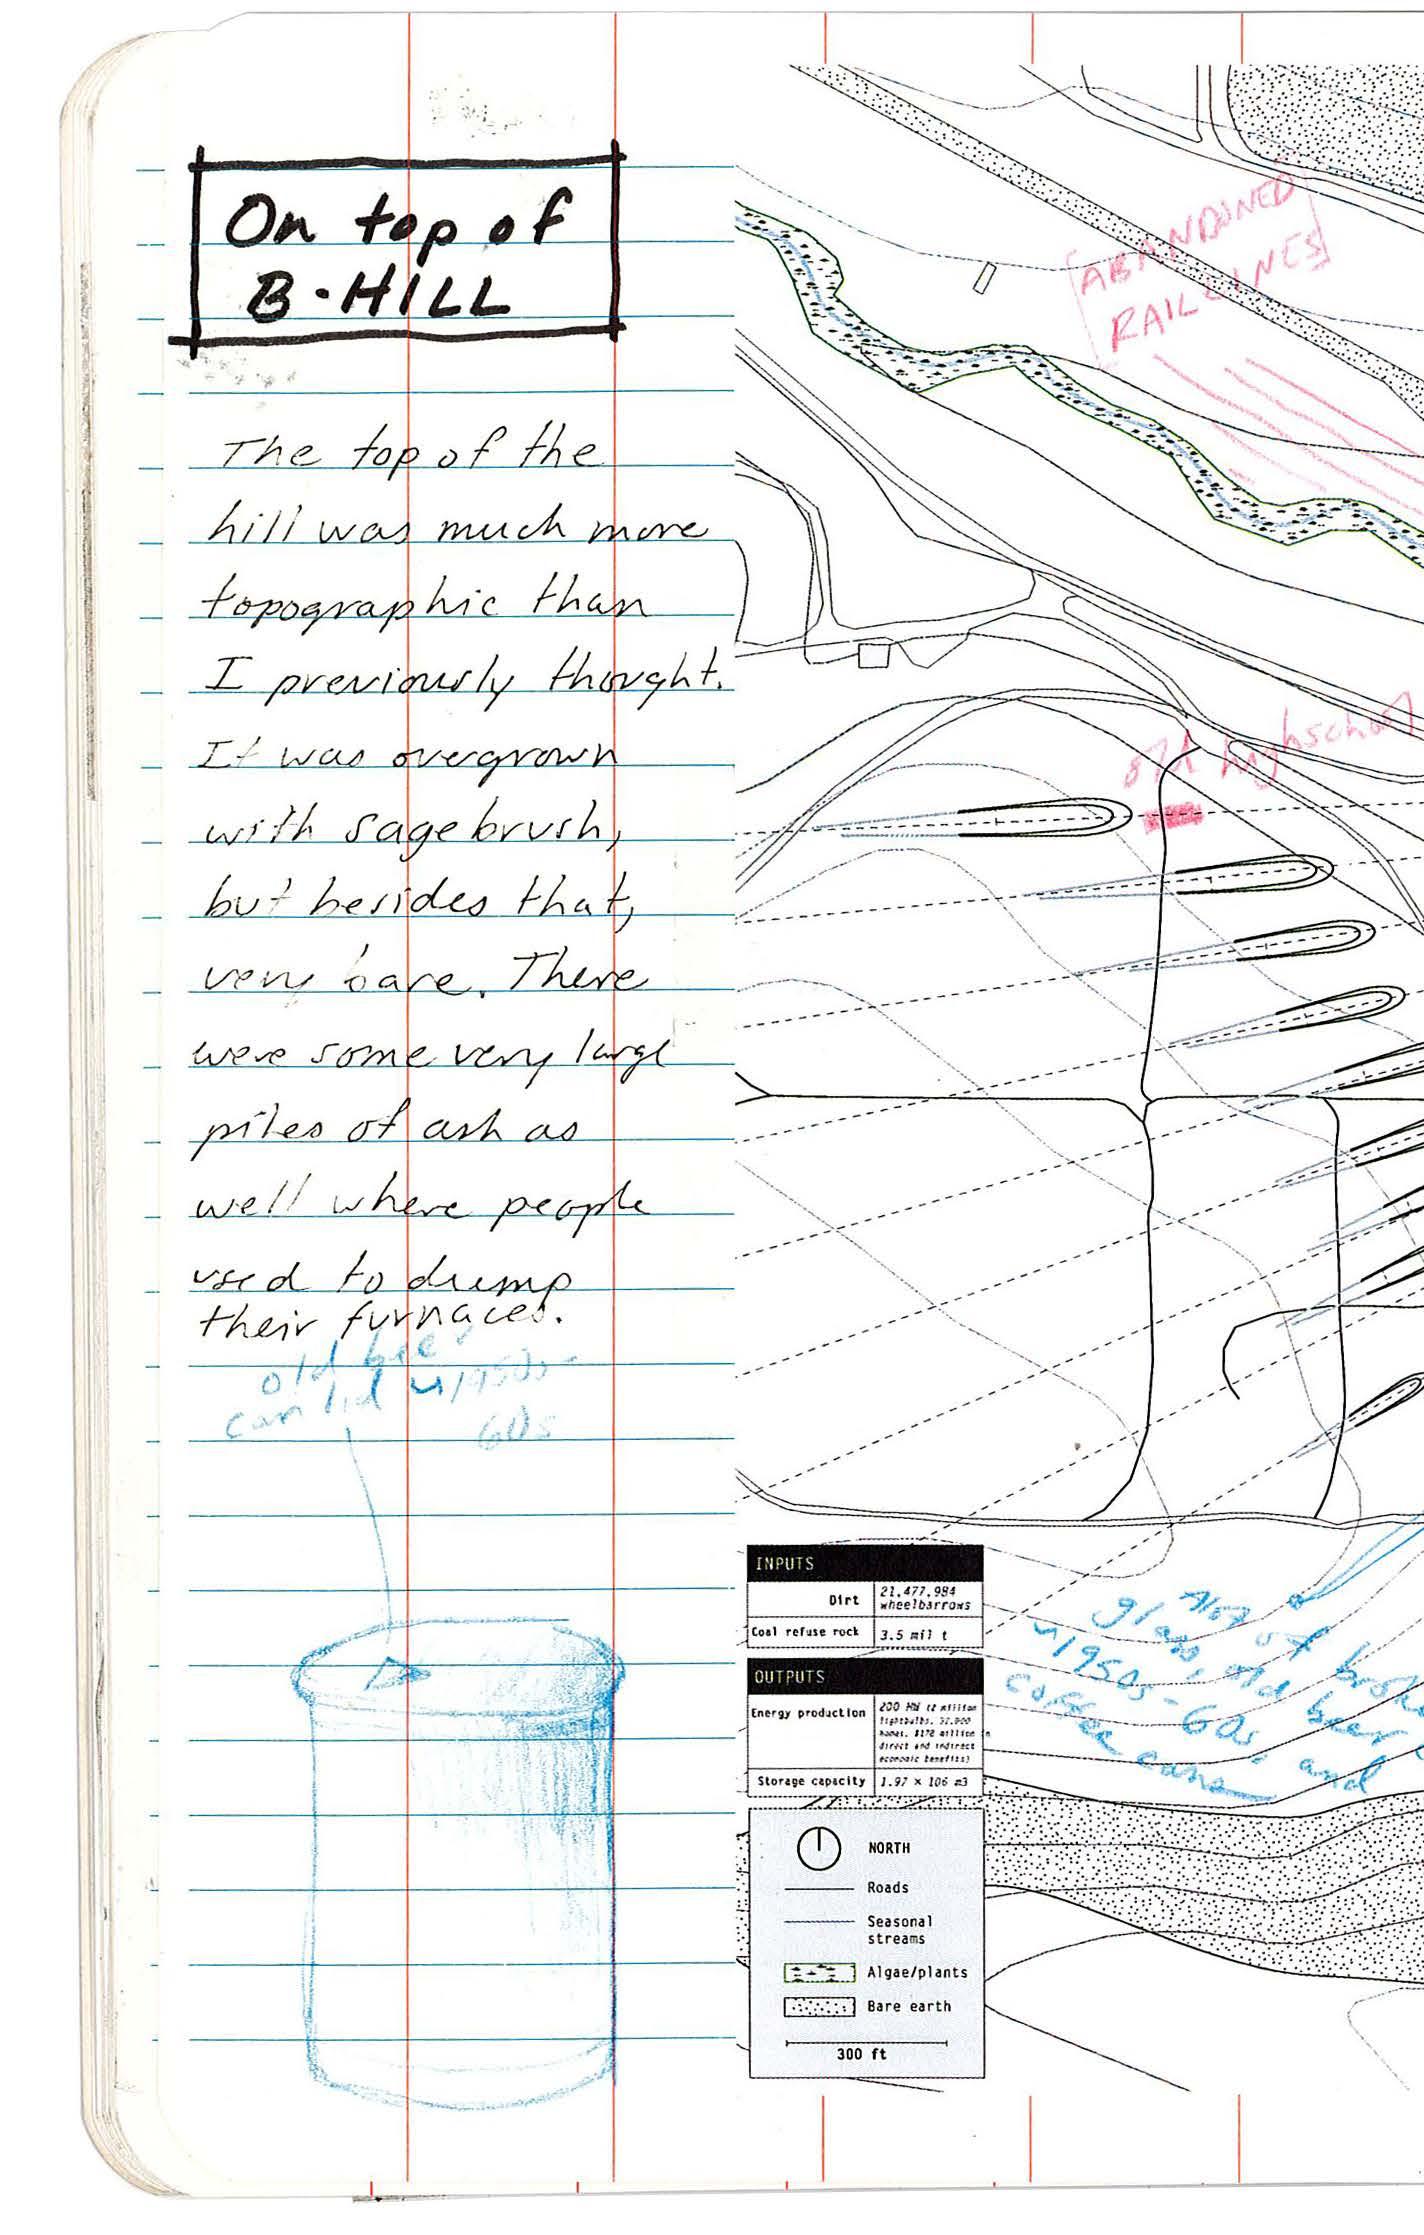 On top of
B·HILL
The top of the
hill was much more
topographic than
I previously thought.
It was overgrown
with sagebrush,
but besides that,
very bare. There
were some very large
piles of ash as
well where people
used to dump
their furnaces.
old beer
can lid ~1950s-
60s
ABANDONED
RAIL LINES
highschool
INPUTS
Dirt 21,477,984
wheelbarrows
Coal refuse rock 3.5 mil t
OUTPUTS
Energy production 200 MW (2 million
lightbulbs,
homes, $170 million in
direct and indirect
economic benefits)
Storage capacity 1.97 × 106 m3
NORTH
Roads
Seasonal
streams
Algae/plants
Bare earth
300 ft
Alot of
glass, old beer
~1950s-60s, and
coffee cans